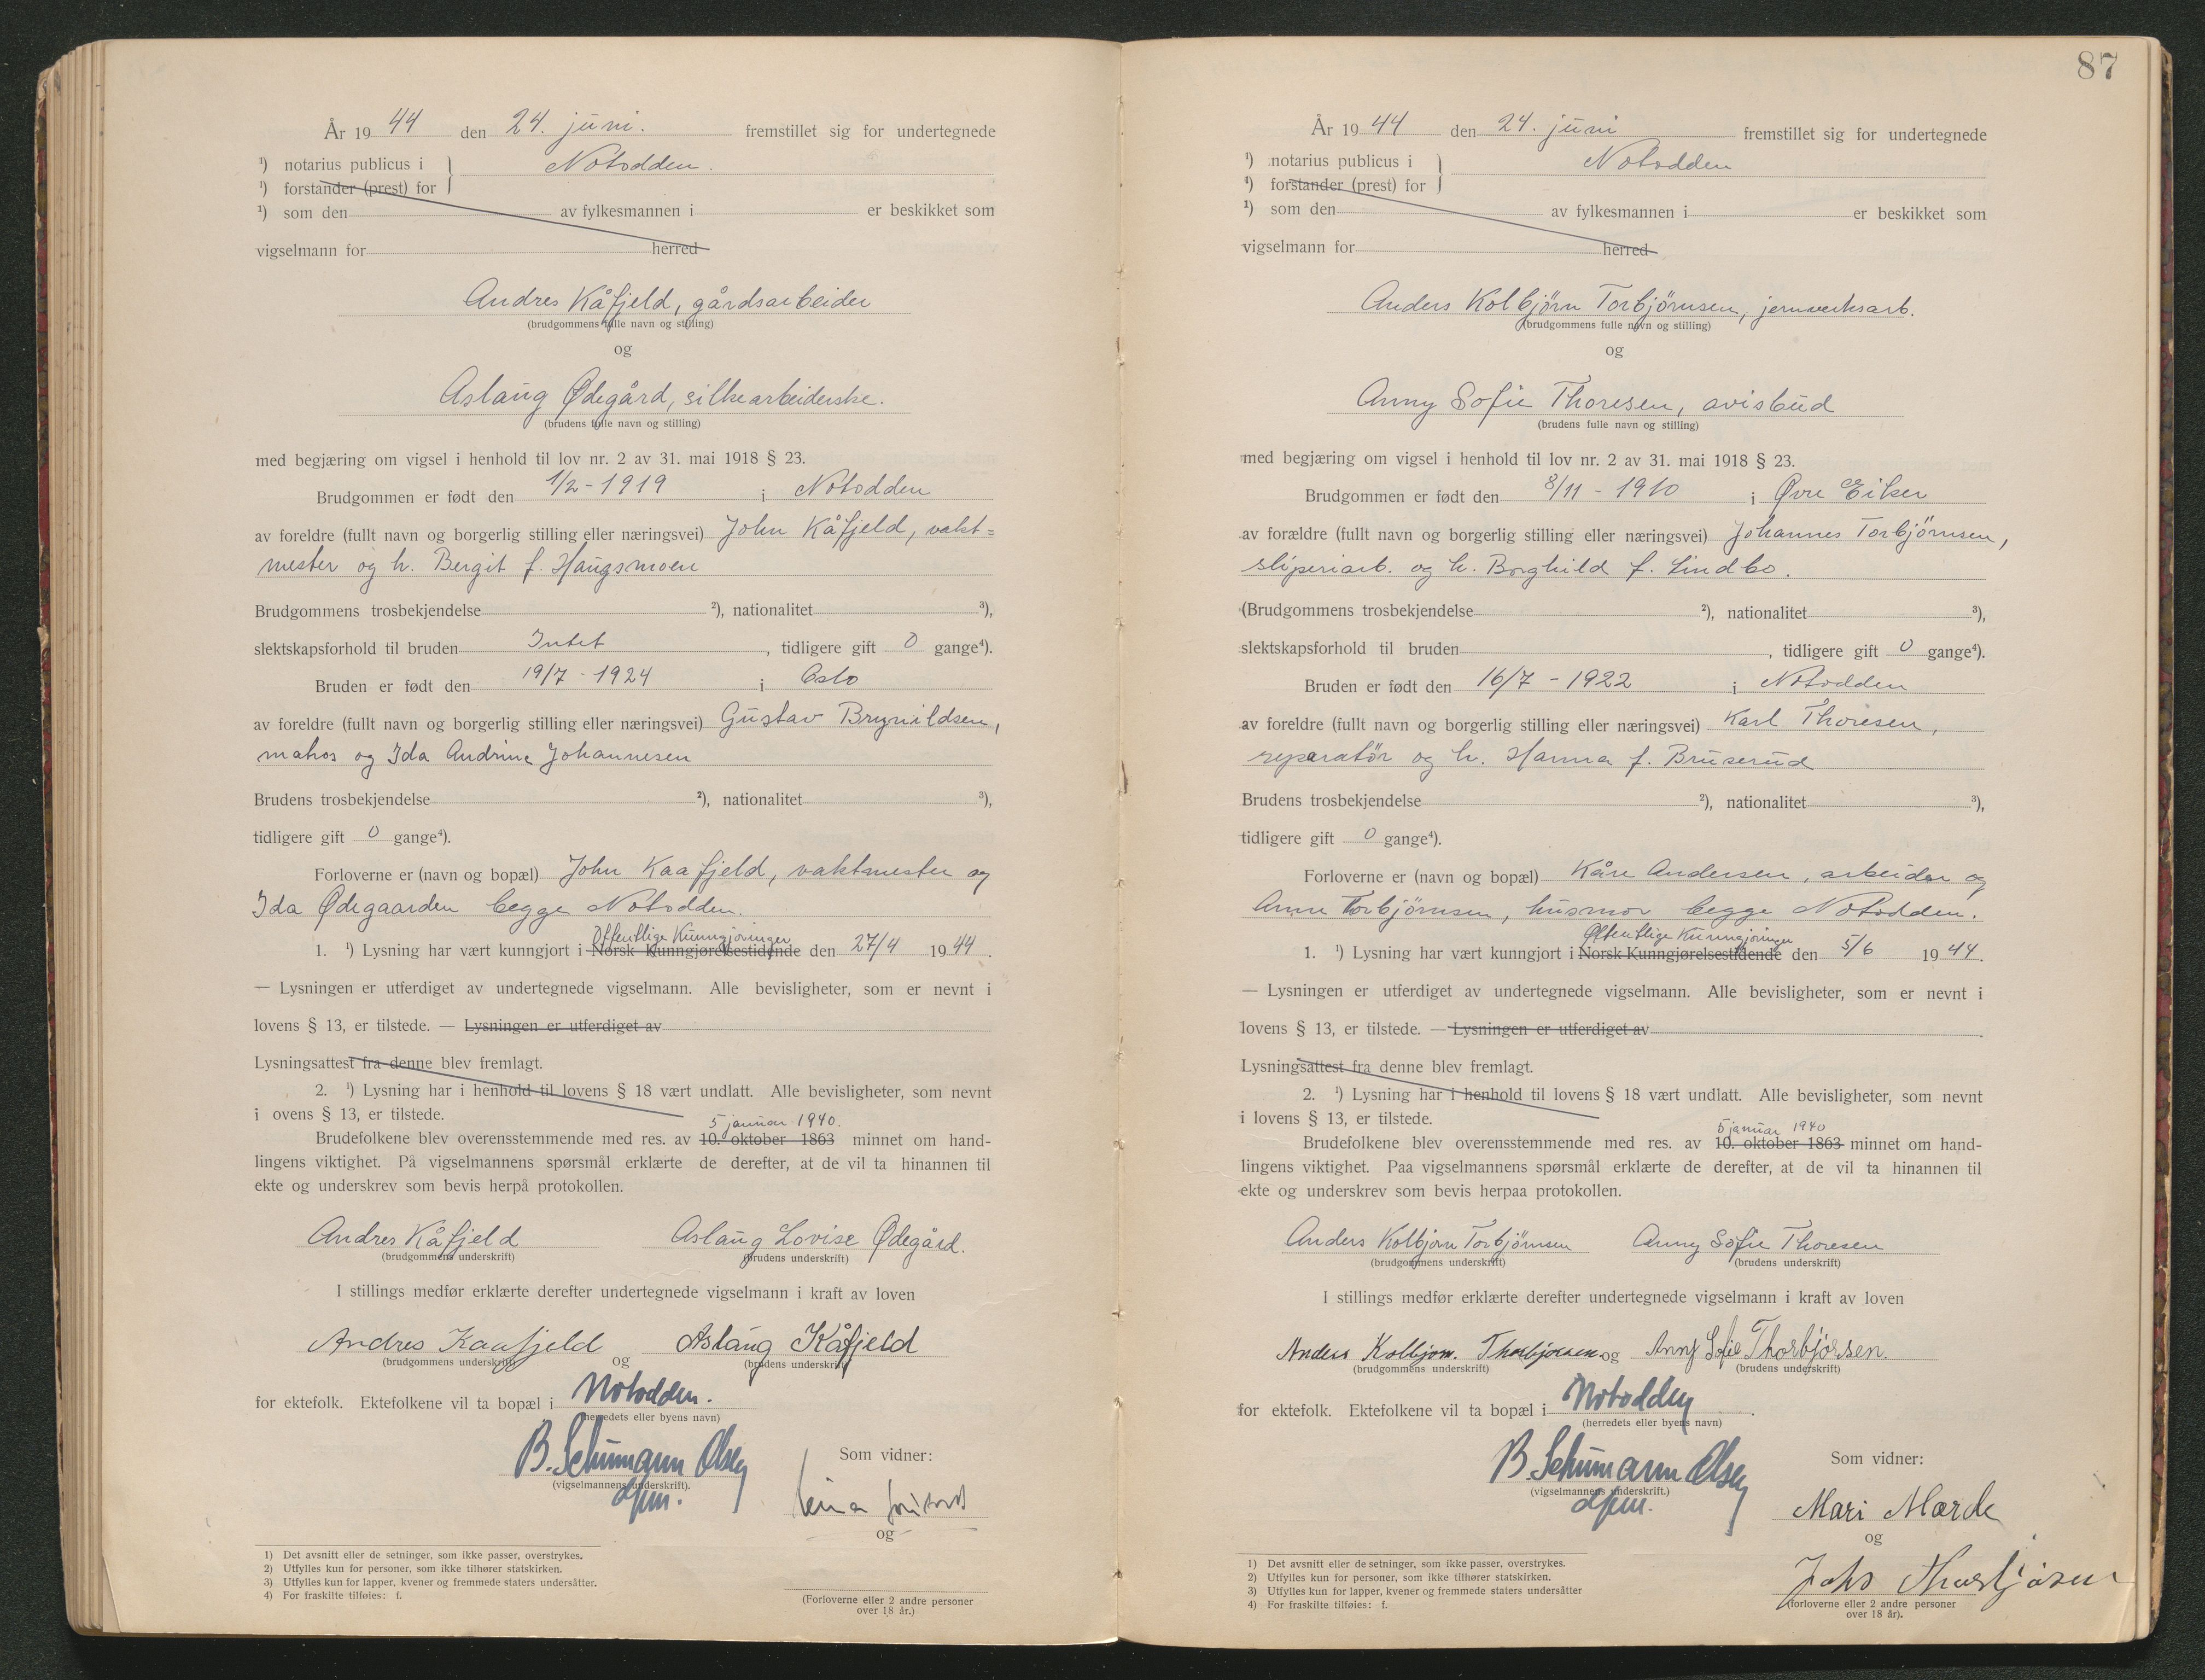 År 1944 den 24. juni. fremstillet sig for undertegnede
¹) notarius publicus i } Notodden.
¹) forstander (prest) for
¹) som den av fylkesmannen i er beskikket som
vigselmann for herred
Andres Kåfjeld, gårdsarbeider
(brudgommens fulle navn og stilling)
og
Aslaug Ødegård, silkearbeiderske.
(brudens fulle navn og stilling)
med begjæring om vigsel i henhold til lov nr. 2 av 31. mai 1918 § 23.
Brudgommen er født den 1/2-1919 i Notodden
av foreldre (fullt navn og borgerlig stilling eller næringsvei) John Kåfjeld, vakt=
mester og h. Bergit f. Haugsmoen
Brudgommens trosbekjendelse ²), nationalitet ³),
slektskapsforhold til bruden Intet, tidligere gift 0 gange⁴).
Bruden er født den 19/7-1924 i Oslo
av foreldre (fullt navn og borgerlig stilling eller næringsvei) Gustav Brynildsen,
matros og Ida Andrine Johannesen
Brudens trosbekjendelse ²), nationalitet ³),
tidligere gift 0 gange⁴).
Forloverne er (navn og bopæl) John Kaafjeld, vaktmester og
Ida Ødegaarden begge Notodden.
Offentlige Kunngjøringer
1. ¹) Lysning har vært kunngjort i Norsk Kunngjørelsestidende den 27/4 1944.
— Lysningen er utferdiget av undertegnede vigselmann. Alle bevisligheter, som er nevnt i
lovens § 13, er tilstede. — Lysningen er utferdiget av
Lysningsattest fra denne blev fremlagt.
2. ¹) Lysning har i henhold til lovens § 18 vært undlatt. Alle bevisligheter, som nevnt
i ovens § 13, er tilstede.
5 januar 1940.
Brudefolkene blev overensstemmende med res. av 10. oktober 1863 minnet om hand-
lingens viktighet. På vigselmannens spørsmål erklærte de derefter, at de vil ta hinannen til
ekte og underskrev som bevis herpå protokollen.
Andres Kåfjeld Aslaug Lovise Ødegård.
(brudgommens underskrift) (brudens underskrift)
I stillings medfør erklærte derefter undertegnede vigselmann i kraft av loven
Andres Kaafjeld og Aslaug Kåfjeld
(brudgommens underskrift) (brudens underskrift)
for ektefolk. Ektefolkene vil ta bopæl i Notodden.
(herredets eller byens navn)
B. Schumann Olsen
(vigselmannens underskrift).
dfm.
Som vidner:
og
(Forloverne eller 2 andre personer
over 18 år.)
1) Det avsnitt eller de setninger, som ikke passer, overstrykes.
2) Utfylles kun for personer, som ikke tilhører statskirken.
3) Utfylles kun for lapper, kvener og fremmede staters undersåtter.
4) For fraskilte tilføies: f.
87
År 1944 den 24. juni fremstillet sig for undertegnede
¹) notarius publicus i } Notodden
¹) forstander (prest) for
¹) som den av fylkesmannen i er beskikket som
vigselmann for herred
Anders Kolbjörn Torbjörnsen, jernverksarb.
(brudgommens fulle navn og stilling)
og
Anny Sofie Thoresen, avisbud
(brudens fulle navn og stilling)
med begjæring om vigsel i henhold til lov nr. 2 av 31. mai 1918 § 23.
Brudgommen er født den 8/11-1910 i Øvre Eiker
av forældre (fullt navn og borgerlig stilling eller næringsvei) Johannes Torbjörnsen,
sliperiarb. og h. Borghild f. Lindbo.
(Brudgommens trosbekjendelse ²), nationalitet ³),
slektskapsforhold til bruden, tidligere gift 0 gange⁴).
Bruden er født den 16/7-1922 i Notodden
av foreldre (fullt navn og borgerlig stilling eller næringsvei) Karl Thoresen,
reparatör og h. Hanna f. Bruserud
Brudens trosbekjendelse ²), nationalitet ³),
tidligere gift 0 gange⁴).
Forloverne er (navn og bopæl) Kåre Andersen, arbeider og
Anne Torbjörnsen, husmor begge Notodden.
Offentlige Kunngjöringer
1. ¹) Lysning har vært kunngjort i Norsk Kunngjørelsestidende den 5/6 1944.
— Lysningen er utferdiget av undertegnede vigselmann. Alle bevisligheter, som er nevnt i
lovens § 13, er tilstede. — Lysningen er utferdiget av
Lysningsattest fra denne blev fremlagt.
2. ¹) Lysning har i henhold til lovens § 18 vært undlatt. Alle bevisligheter, som nevnt
i lovens § 13, er tilstede.
5 januar 1940
Brudefolkene blev overensstemmende med res. av 10. oktober 1863 minnet om hand-
lingens viktighet. Paa vigselmannens spørsmål erklærte de derefter, at de vil ta hinannen til
ekte og underskrev som bevis herpaa protokollen.
Anders Kolbjørn Torbjörnsen Anny Sofie Thoresen
(brudgommens underskrift) (brudens underskrift)
I stillings medfør erklærte derefter undertegnede vigselmann i kraft av loven
Anders Kolbjørn. Thorbjørsen og Anny Sofie Thorbjørsen.
(brudgommens underskrift) (brudens underskrift)
for ektefolk. Ektefolkene vil ta bopæl i Notodden.
(herredets eller byens navn)
B. Schumann Olsen
(vigselmannens underskrift.)
dfm.
Som vidner:
Mari Mærde
og
Johs Thorbjøsen
(forloverne eller 2 andre personer
over 18 år).
1) Det avsnitt eller de setninger, som ikke passer, overstrykes.
2) Utfylles kun for personer, som ikke tilhører statskirken.
3) Utfylles kun for lapper, kvener og fremmede staters undersåtter
4) For fraskilte tilføies: f.